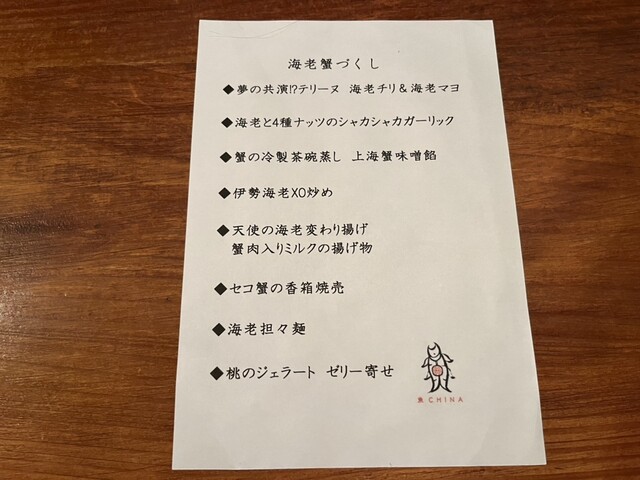 海老蟹づくし
◆夢の共演!?テリーヌ 海老チリ＆海老マヨ
◆海老と4種ナッツのシャカシャカガーリック
◆蟹の冷製茶碗蒸し 上海蟹味噌餡
◆伊勢海老XO炒め
◆天使の海老変わり揚げ
蟹肉入りミルクの揚げ物
◆セコ蟹の香箱焼売
◆海老担々麺
◆桃のジェラート ゼリー寄せ
CHINA